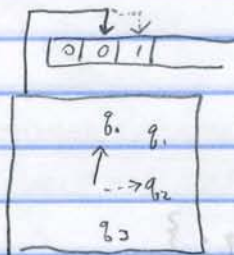 0 0 1
q₀ q₁
q₂
q₃